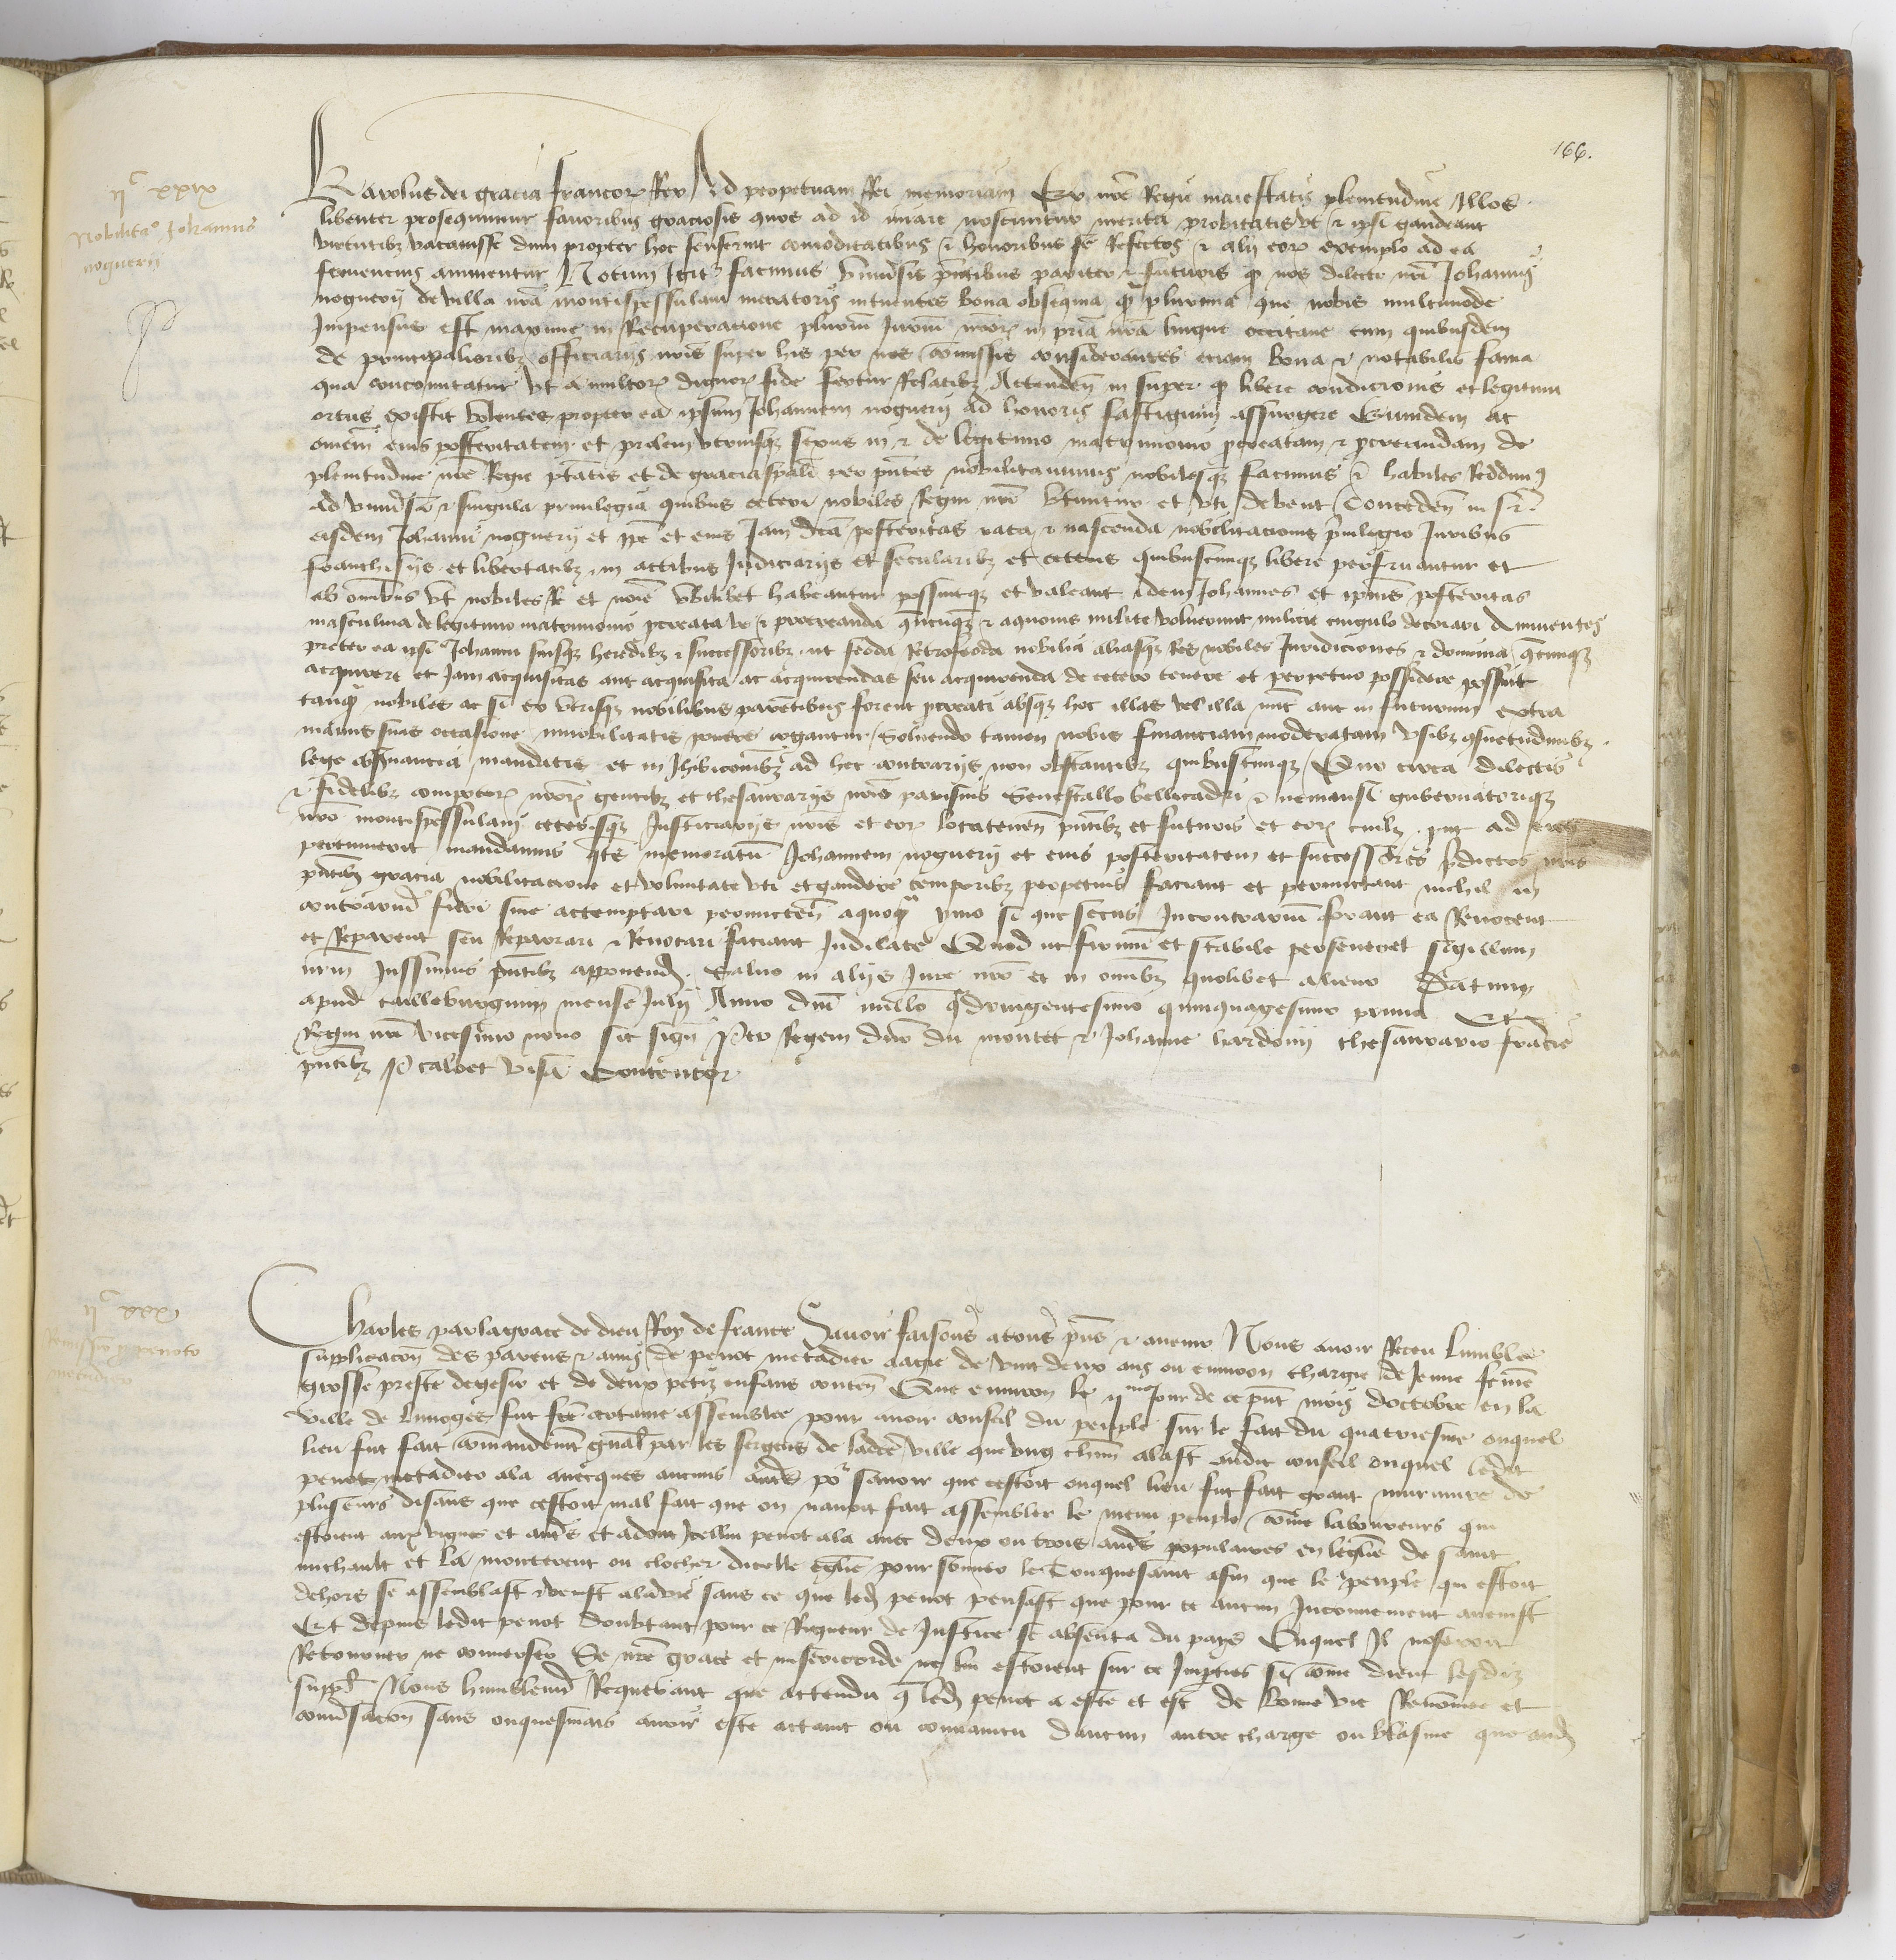 166.
II C XXIX
Nobilitaco Johannis
noguerii
Karolus dei gracia francor Rex Ad perpetuam Rei memoriam Ex nre Regie maiestatis plenitudine Illos
libenter prosequimur favoribus graciosis quos ad id iuvare noscuntur merita probitatis ut et ipsi gaudeant
virtutibz vacavisse dum propter hoc senserint comoditatibus et honoribus se Refectos et alij eor exemplo ad ea
ferventius animentur Notum Igitr facimus Univsis pntibus pariter et futuris q nos dilecti nri Johannis
noguerij de villa nra montispessulani mercatoris intuentes bona obsequia q plurima que nobis multimode
Impensus est maxime in Recuperacione plurim Jurium nror in pria nra lingue occitane cum quibusdem
de principalioribz officiariis nris super his per nos comissis considerantes etiam bona et notabilis fama
qua concomitatur ut a multor dignor fide fertur Relatibz Attenden in super q libere condicionis et legitimi
ortus existit Volentes propter ea ipsum Johannem noguerij ad honoris fastigium assurgere Eumdem ac
omem eius posteritatem et prolem utriusqz sexus in et de legitimo matrimonio pcreatam et pcreandam de
plenitudine nre Regie ptatis et de gracia spali per pntes nobilitavimus nobilesqz facimus et habiles Reddim
ad univsa et singula privilegia quibus ceteri nobiles Regni nri utuntur et uti debent Conceden
eisdem Johanni noguerij et ipe et eius Jam dca posteritas nata et nascenda nobilitacionis privilegio Juribus
franchisijs et libertatibz in actibus Judiciarijs et secularibz et ceteris quibuscunqz libere perfruantur et
ab omibus ut nobiles Re et noie ubilibet habeantur possintqz et valeant idem Johannes et ipius posteritas
masculina de legitimo matrimonio pcreata ac et procreanda qncunqz et a quovis milite voluerint milicie cingulo decorari Annuentes
preter ea ipsi Johanni suisqz heredibz et successoribz ut feoda Retrofeoda nobilia aliasqz Res nobiles Juridiciones et dominia qcumqz
acquirere et Jam acquisitas aut acquisita ac acquirendas seu acquirenda de cetero tenere et perpetuo possidere possint
tanq nobiles ac si ex utrisqz nobilibus parentibus forent pcreati absqz hoc illas vel illa nunc aut in futurum extra
manus suas occasione innobilitatis ponere cogantur Solvendo tamen nobis financiam moderatam Usibz qsuetudinibz
lege observancia mandatis et in Jhibiconibz ad hec contrarijs non obstantibz quibuscunqz Quo circa dilectis
et fidelibz compotor nror gentibz et thesaurarijs nris parisius Senescallo bellicadri et nemausi gubernatoriqz
nro montispessulani ceterisqz Justiciarijs nris et eor locatenen pntibz et futuris et eor cuilz put ad eum
pertinuerit mandamus qte memoratum Johannem noguerij et eius posteritatem et successores pdictos nris
pntibz gracia nobilitacione et voluntate uti et gaudere temporibz perpetuis faciant et permictant nichil in
contrarium fieri sine actemptari permicten aquoqz ymo si que secus In contrarium forent ea Revocent
et Reparent seu Reparari et Revocari faciant Indilate Quod ut firmum et stabile perseveret sigillum
nrm Jussimus pntibz apponend. Salvo in alijs Jure nro et in omibz quolibet alieno Datum
apud tailleburgum mense Julij Anno dni millo qdringentesimo quinquagesimo primo Et
Regni nri vicesimo nono sic sign Per Regem dno du montet et Johanne hardoin thesaurario francie
pntibz P calvet Visa Contentor
II C XXXI
Remissio p penoto
metadier
Charles par la grace de dieu Roy de france Savoir faisons a tous pns et avenir Nous avoir Receu lumble
supplicacion des parens et amis de penot metadier aagie de vint deux ans ou environ chargie de Jeune feme
grosse preste degesir et de deux petiz enfans conten Que environ le IIme Jour de ce pnt mois doctobre en la
ville de limoges fut fcte certaine assemblee pour avoir conseil du peuple sur le fait du quatriesme ouquel
lieu fut fait comandement gnal par les sergens de ladcte ville que ung chun alast oudit conseil ouquel ledit
penot metadier ala avecques aucuns aues por savoir que cestoit ouquel lieu fut fait grant murmure de
plusieurs disans que cestoit mal fait que on navoit fait assembler le menu peuple come laboureurs qui
estoient aux vignes et aues et adonc Icellui penot ala avec deux ou trois aues populaires en leglise de saint
michault et la monterent ou clocher dicelle eglise pour sonner le Touquesaint afin que le peuple qui estoit
dehors se assemblast et venist a la dte sans ce que led penot pensast que pour ce aucun Inconvenient avenist
Et depuis ledit penot doubtant pour ce Rigueur de Justice se absenta du pays Ouquel Il noseroit
Retourner ne converser Se nre grace et misericorde ne lui estoient sur ce Imparties si come dient lesdiz
suppl Nous humblemt Requerant que actendu q led penot a este et est de bonne vie Renommee et
conversacion sans oncquesmais avoir este actaint ou convaincu daucun autre charge ou blasme que aud